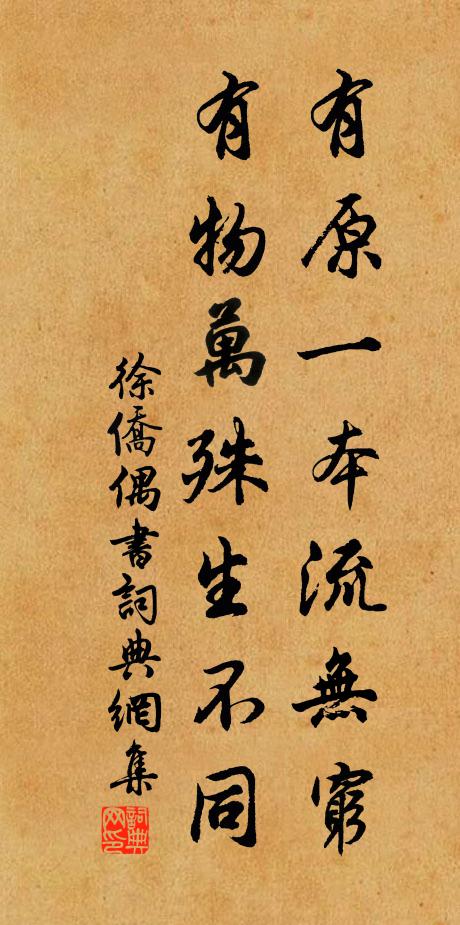 有原一本流無窮
有物萬殊生不同
徐僑偶書詞典網集
詞典网印